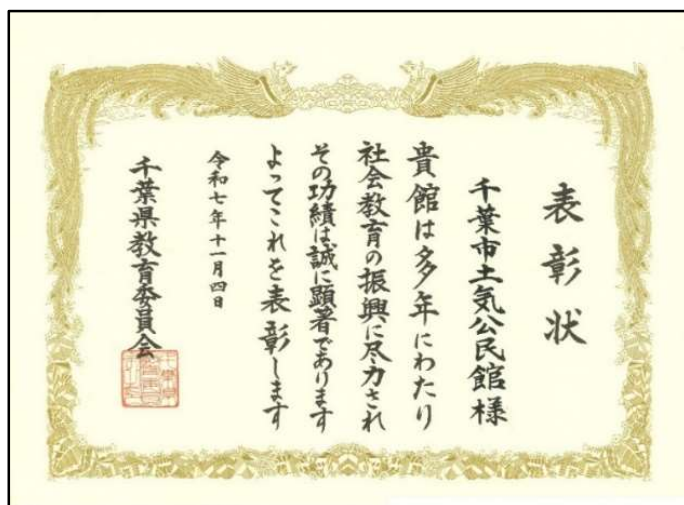 表彰状
千葉市土気公民館様
貴館は多年にわたり
社会教育の振興に尽力され
その功績は誠に顕著であります
よってこれを表彰します
令和七年十一月四日
千葉県教育委員会